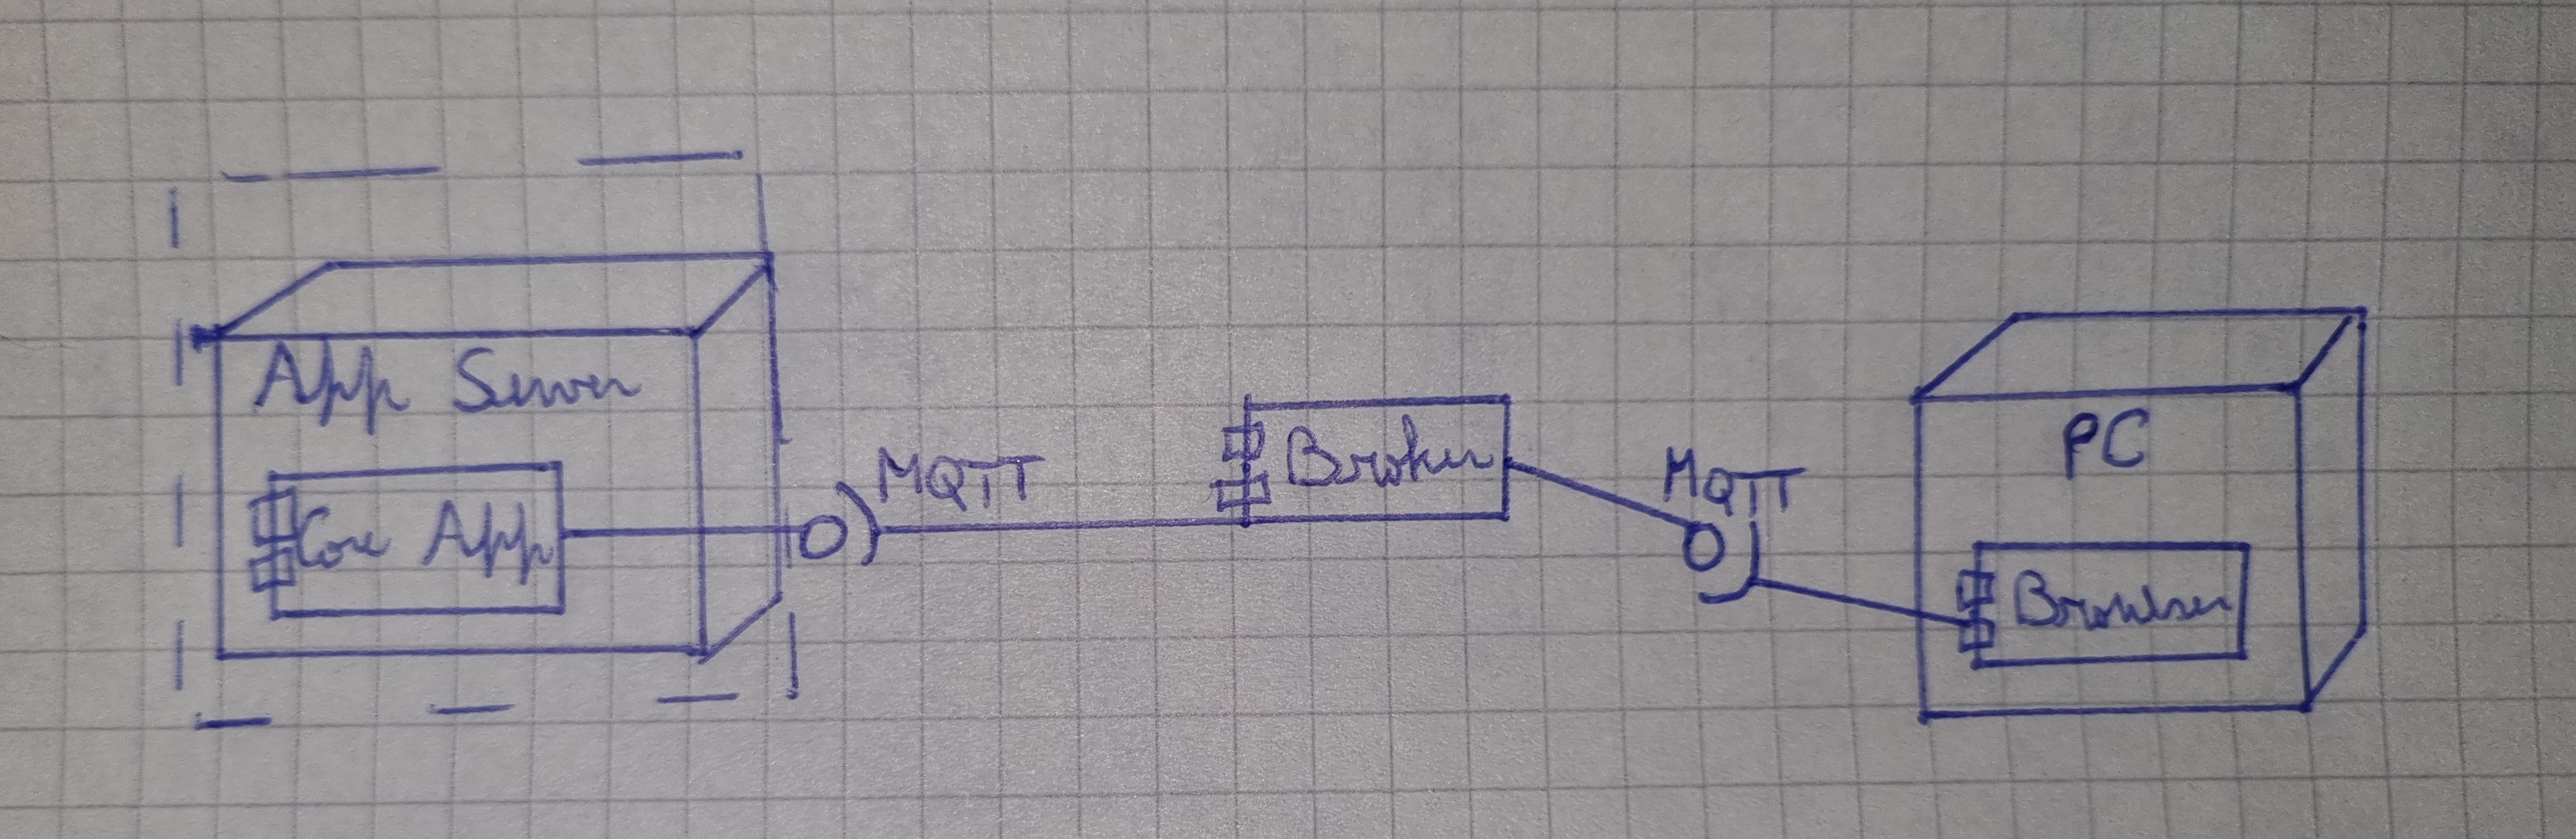 App Server
Core App
MQTT
Broker
MQTT
PC
Browser